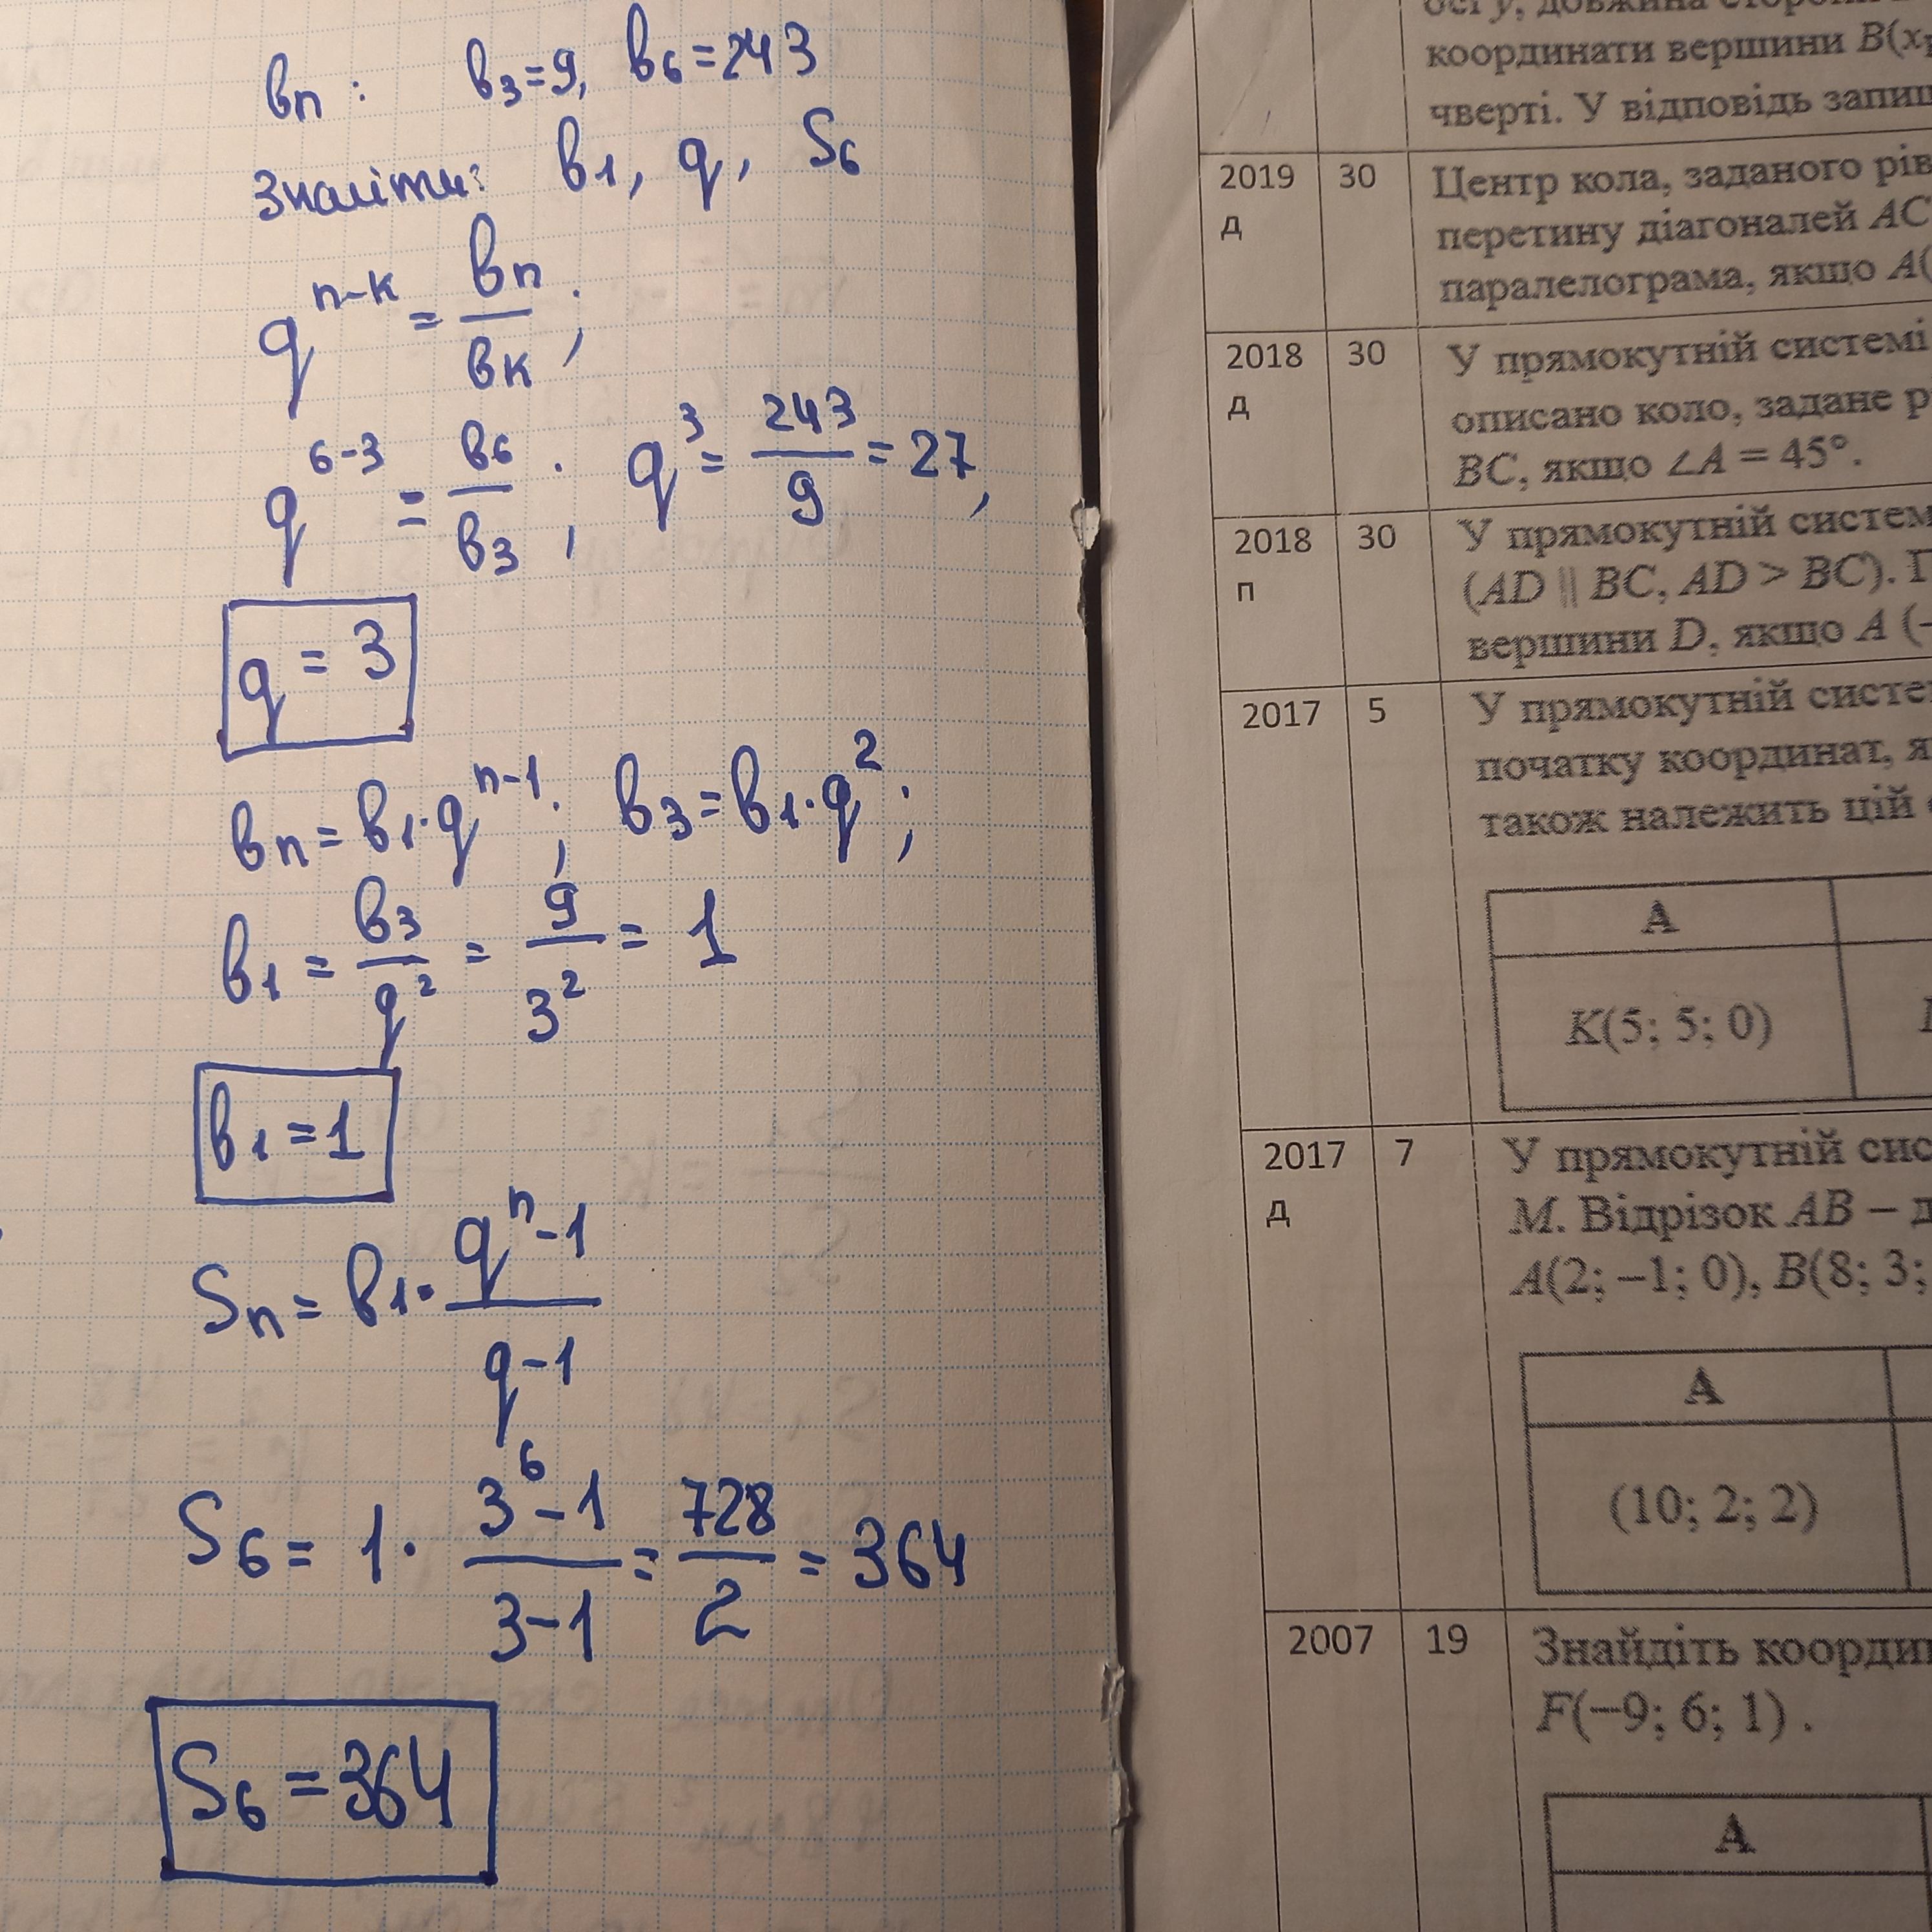 вn : в3=9, в6=243
Знайти: в1, q, S6
q^n-к = вn/вк ;
q^6-3 = в6/в3 ; q^3 = 243/9 = 27,
q = 3
вn = в1·q^n-1 ; в3 = в1·q^2 ;
в1 = в3/q^2 = 9/3^2 = 1
в1 = 1
Sn = в1· q^n-1/q-1
S6 = 1· 3^6-1/3-1 = 728/2 = 364
S6 = 364
координати вершини B(x
чверті. У відповідь
2019 30 Центр кола, заданого
д перетину діагоналей AC
паралелограма, якщо A(
2018 30 У прямокутній системі
д описано коло, задане
BC, якщо ∠A = 45°.
2018 30 У прямокутній
п (AD || BC, AD > BC).
вершини D, якщо A (–
2017 5 У прямокутній
початку координат,
також належить цій
А
K(5; 5; 0)
2017 7 У прямокутній
д M. Відрізок AB –
A(2; –1; 0), B(8; 3;
А
(10; 2; 2)
2007 19 Знайдіть
F(–9; 6; 1) .
А